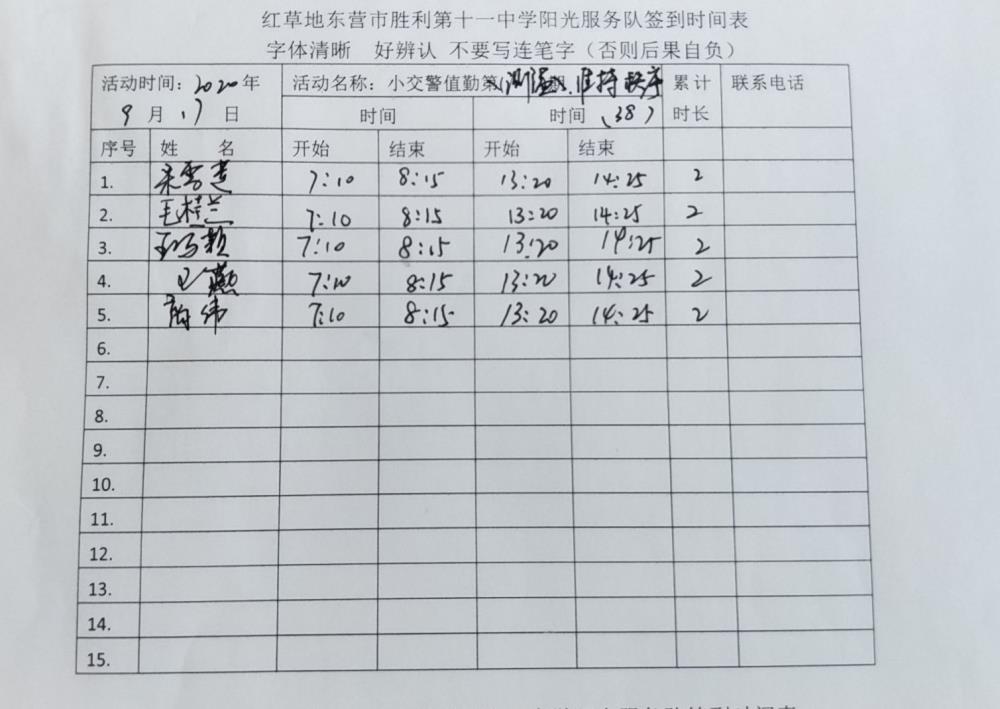 红草地东营市胜利第十一中学阳光服务队签到时间表
字体清晰 好辨认 不要写连笔字（否则后果自负）
活动时间：2020年 活动名称：小交警值勤第 测温、维持秩序 累计 联系电话
9月17日 时间 时间（38） 时长
序号 姓 名 开始 结束 开始 结束
1. 7:10 8:15 13:20 14:25 2
2. 毛桂兰 7:10 8:15 13:20 14:25 2
3. 7:10 8:15 13:20 14:25 2
4. 燕 7:10 8:15 13:20 14:25 2
5. 7:10 8:15 13:20 14:25 2
6.
7.
8.
9.
10.
11.
12.
13.
14.
15.